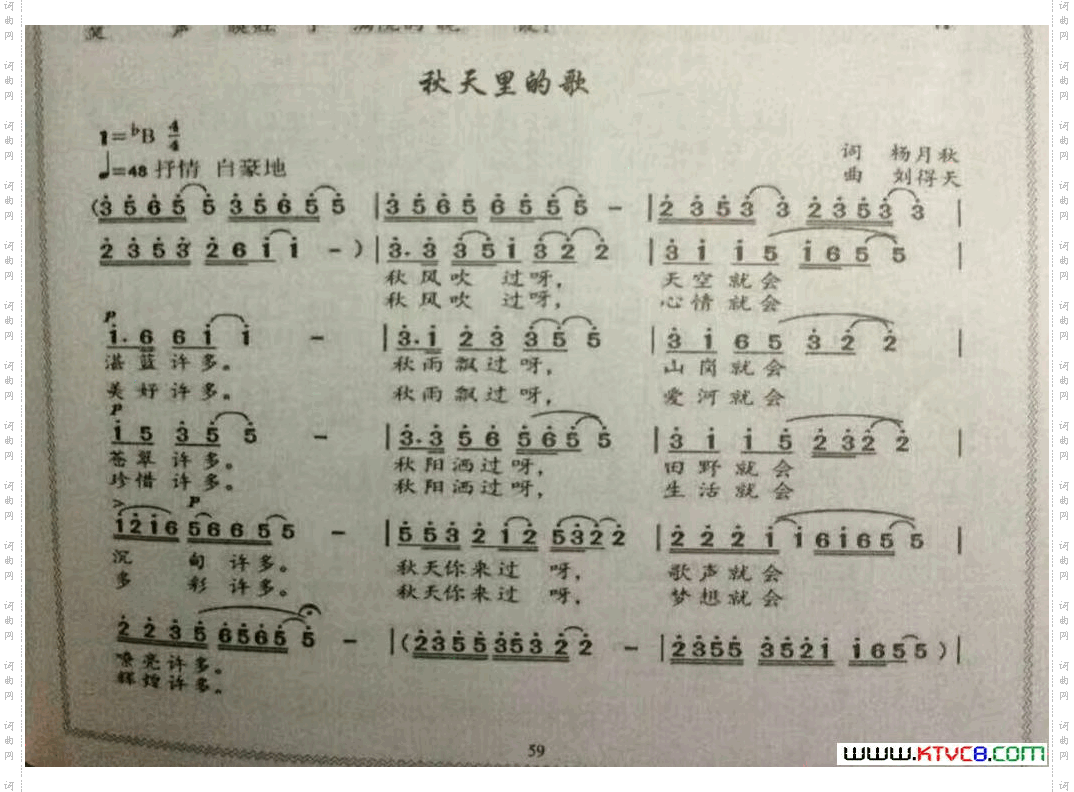 秋天里的歌
1=ᵇB 4/4
♩=48 抒情 自豪地
词 杨月秋
曲 刘得天
(3 5 6 5 5 3 5 6 5 5 | 3 5 6 5 6 5 5 5 – | 2 3 5 3 3 2 3 5 3 3 |
2 3 5 3 2 6 1 1 – ) | 3. 3 3 5 1 3 2 2 | 3 1 1 5 1 6 5 5 |
秋 风 吹 过 呀， 天 空 就 会
秋 风 吹 过 呀， 心 情 就 会
P
1. 6 6 1 1 – | 3. 1 2 3 3 5 5 | 3 1 6 5 3 2 2 |
湛 蓝 许 多。 秋 雨 飘 过 呀， 山 岗 就 会
美 好 许 多。 秋 雨 飘 过 呀， 爱 河 就 会
P
1 5 3 5 5 – | 3. 3 5 6 5 6 5 5 | 3 1 1 5 2 3 2 2 |
苍 翠 许 多。 秋 阳 洒 过 呀， 田 野 就 会
珍 惜 许 多。 秋 阳 洒 过 呀， 生 活 就 会
> P
1 2 1 6 5 6 6 5 5 – | 5 5 3 2 1 2 5 3 2 2 | 2 2 2 1 1 6 1 6 5 5 |
沉 甸 许 多。 秋 天 你 来 过 呀， 歌 声 就 会
多 彩 许 多。 秋 天 你 来 过 呀， 梦 想 就 会
2 2 3 5 6 5 6 5 5 – | (2 3 5 5 3 5 3 2 2 – | 2 3 5 5 3 5 2 1 1 6 5 5 ) |
嘹 亮 许 多。
辉 煌 许 多。
59
www.KTVC8.com
词曲网